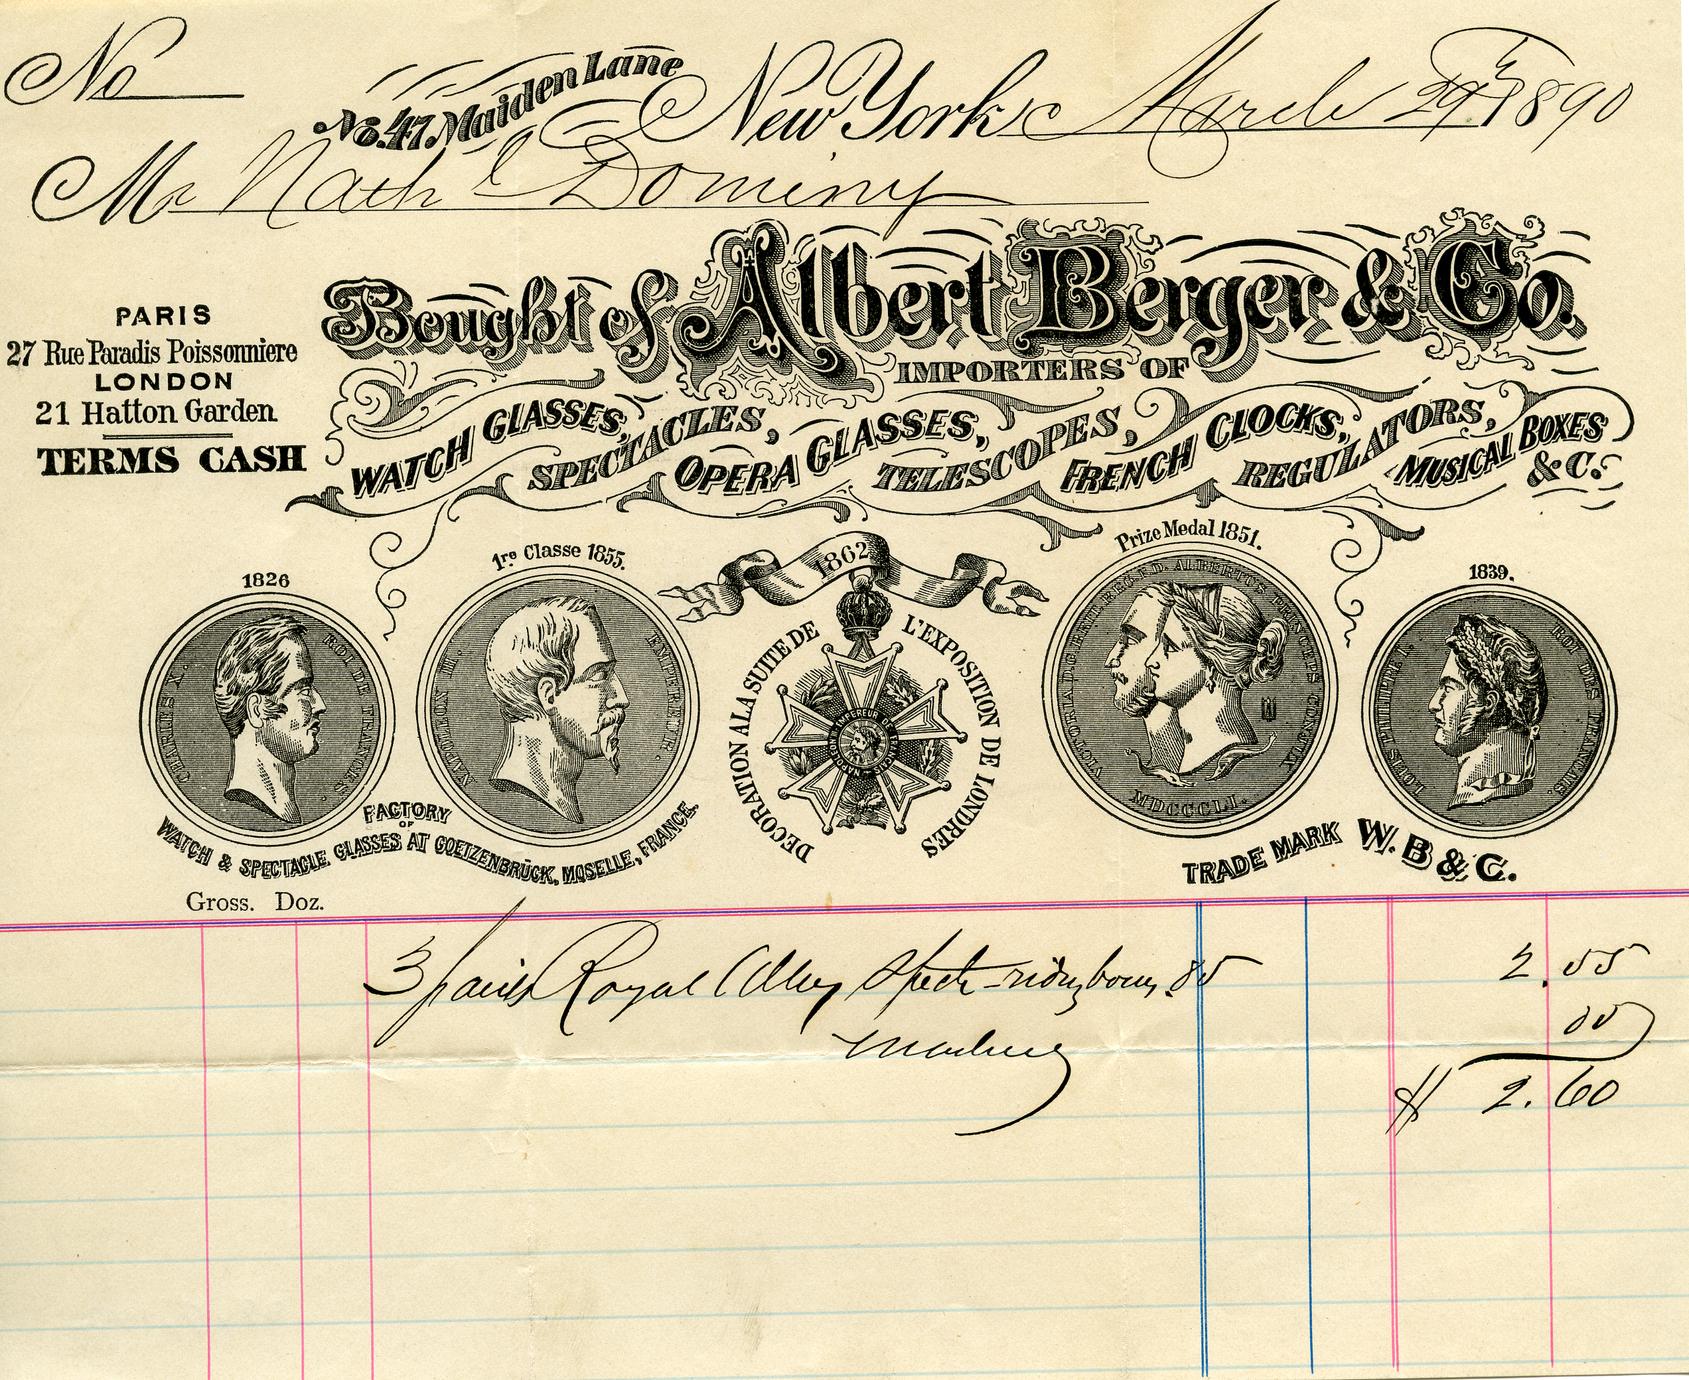 No
No. 47. Maiden Lane
New York, March 29th 1890
Mr Nath l Dominy
Bought of Albert Berger & Co.
IMPORTERS OF
WATCH GLASSES, SPECTACLES, OPERA GLASSES, TELESCOPES, FRENCH CLOCKS, REGULATORS, MUSICAL BOXES &C.
PARIS
27 Rue Paradis Poissonniere
LONDON
21 Hatton Garden
TERMS CASH
1826
CHARLES X. ROI DE FRANCE.
1re Classe 1855.
NAPOLEON III. EMPEREUR.
1862
DECORATION A LA SUITE DE L'EXPOSITION DE LONDRES
Prize Medal 1851.
VICTORIA D.G. BRIT. REG. F.D. ALBERTUS PRINCEPS CONJUX
MDCCCLI.
1839.
LOUIS PHILIPPE I. ROI DES FRANCAIS.
FACTORY
OF
WATCH & SPECTACLE GLASSES AT GOETZENBRÜCK, MOSELLE, FRANCE.
TRADE MARK W. B & C.
Gross. Doz.
3 pairs Royal Alloy Spect- .85 2.55
05
$ 2.60